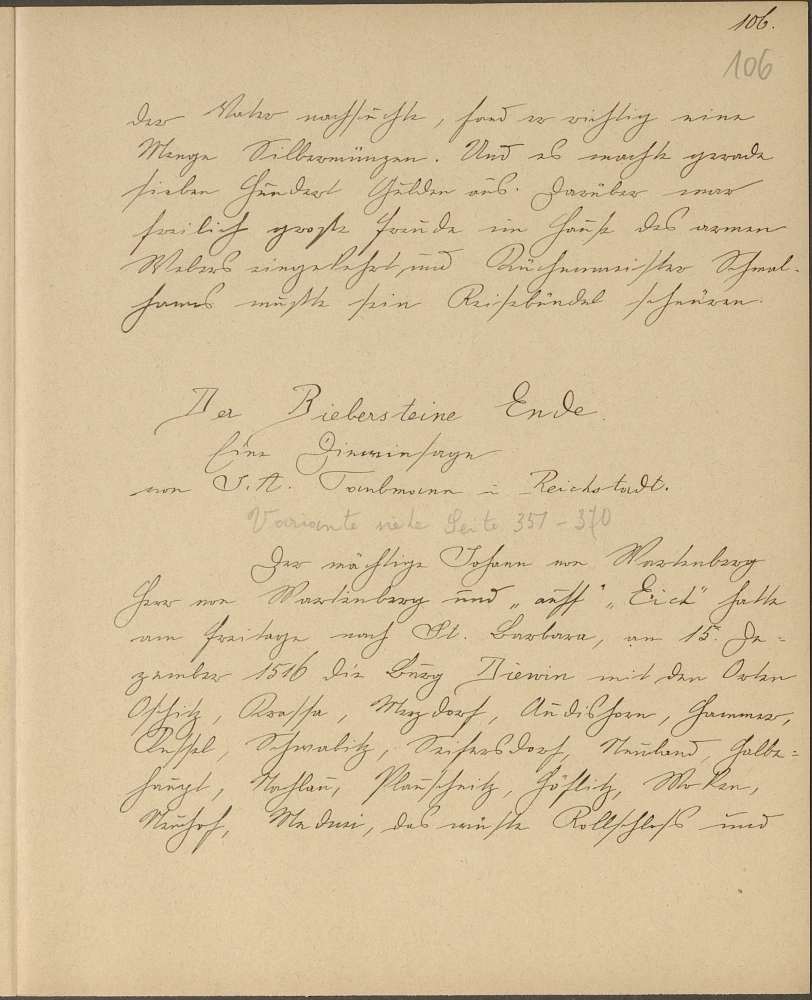 106.
106
der Vater nachsuchte, fand er richtig eine
Menge Silbermünzen. Und es machte gerade
sieben Hundert Gulden aus. Darüber war
freilich große Freude im Hause des armen
Webers eingekehrt, und Küchenmeister Schmal-
hans mußte sein Reisebündel schnüren.
Der Biebersteine Ende.
Eine Diewinsage
von J. A. Taubmann in Reichstadt.
Variante siehe Seite 351 - 370
Der mächtige Johann von Wartenberg
Herr von Wartenberg und „auff" „Eich" hatte
am Freitage nach St. Barbara, am 15. De=
zember 1516 die Burg Diewin mit den Orten
Oschitz, Krassa, Merzdorf, Audishorn, Hammer,
Schwabitz, Seifersdorf, Neuland, Halbe=
haupt, Nachlau, Plauschnitz, Höflitz, Woken,
Neuhof, das wüste Rollschloß und